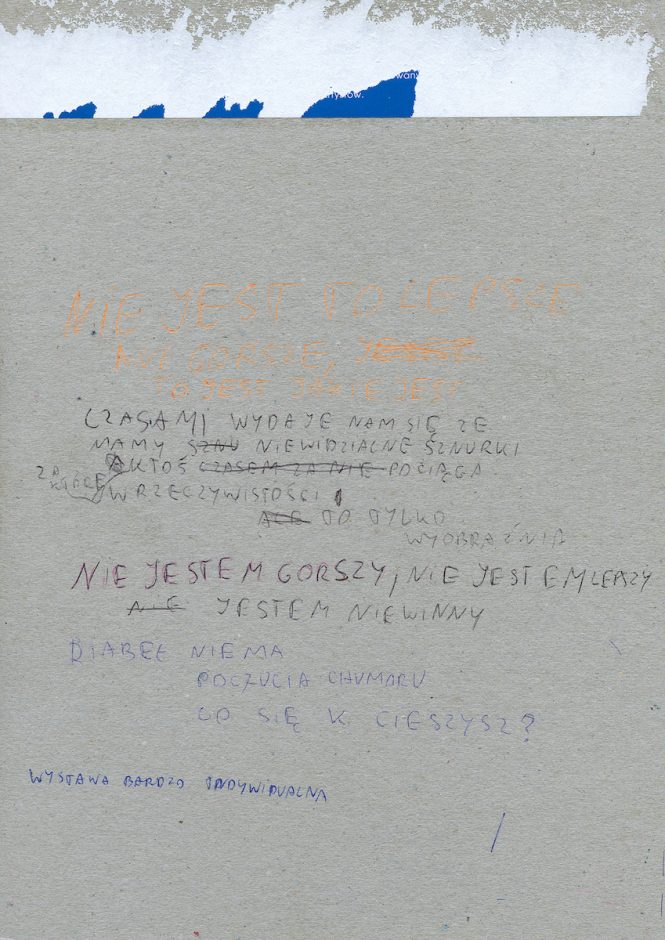 NIE JEST TO LEPSZE
ANI GORSZE,
TO JEST JAKIE JEST
CZASAMI WYDAJE NAM SIĘ ZE
MAMY SZNU NIEWIDZIALNE SZNURKI
A KTOŚ CZASEM ZA NIE POCIĄGA
ZA
W RZECZYWISTOŚCI
ALE TO TYLKO
WYOBRAŹNIA
NIE JESTEM GORSZY, NIE JESTEM LEPSZY
JESTEM NIEWINNY
DIABEŁ NIE MA
POCZUCIA CHUMORU
CO SIĘ K. CIESZYSZ?
WYSTAWA BARDZO INDYWIDUALNA